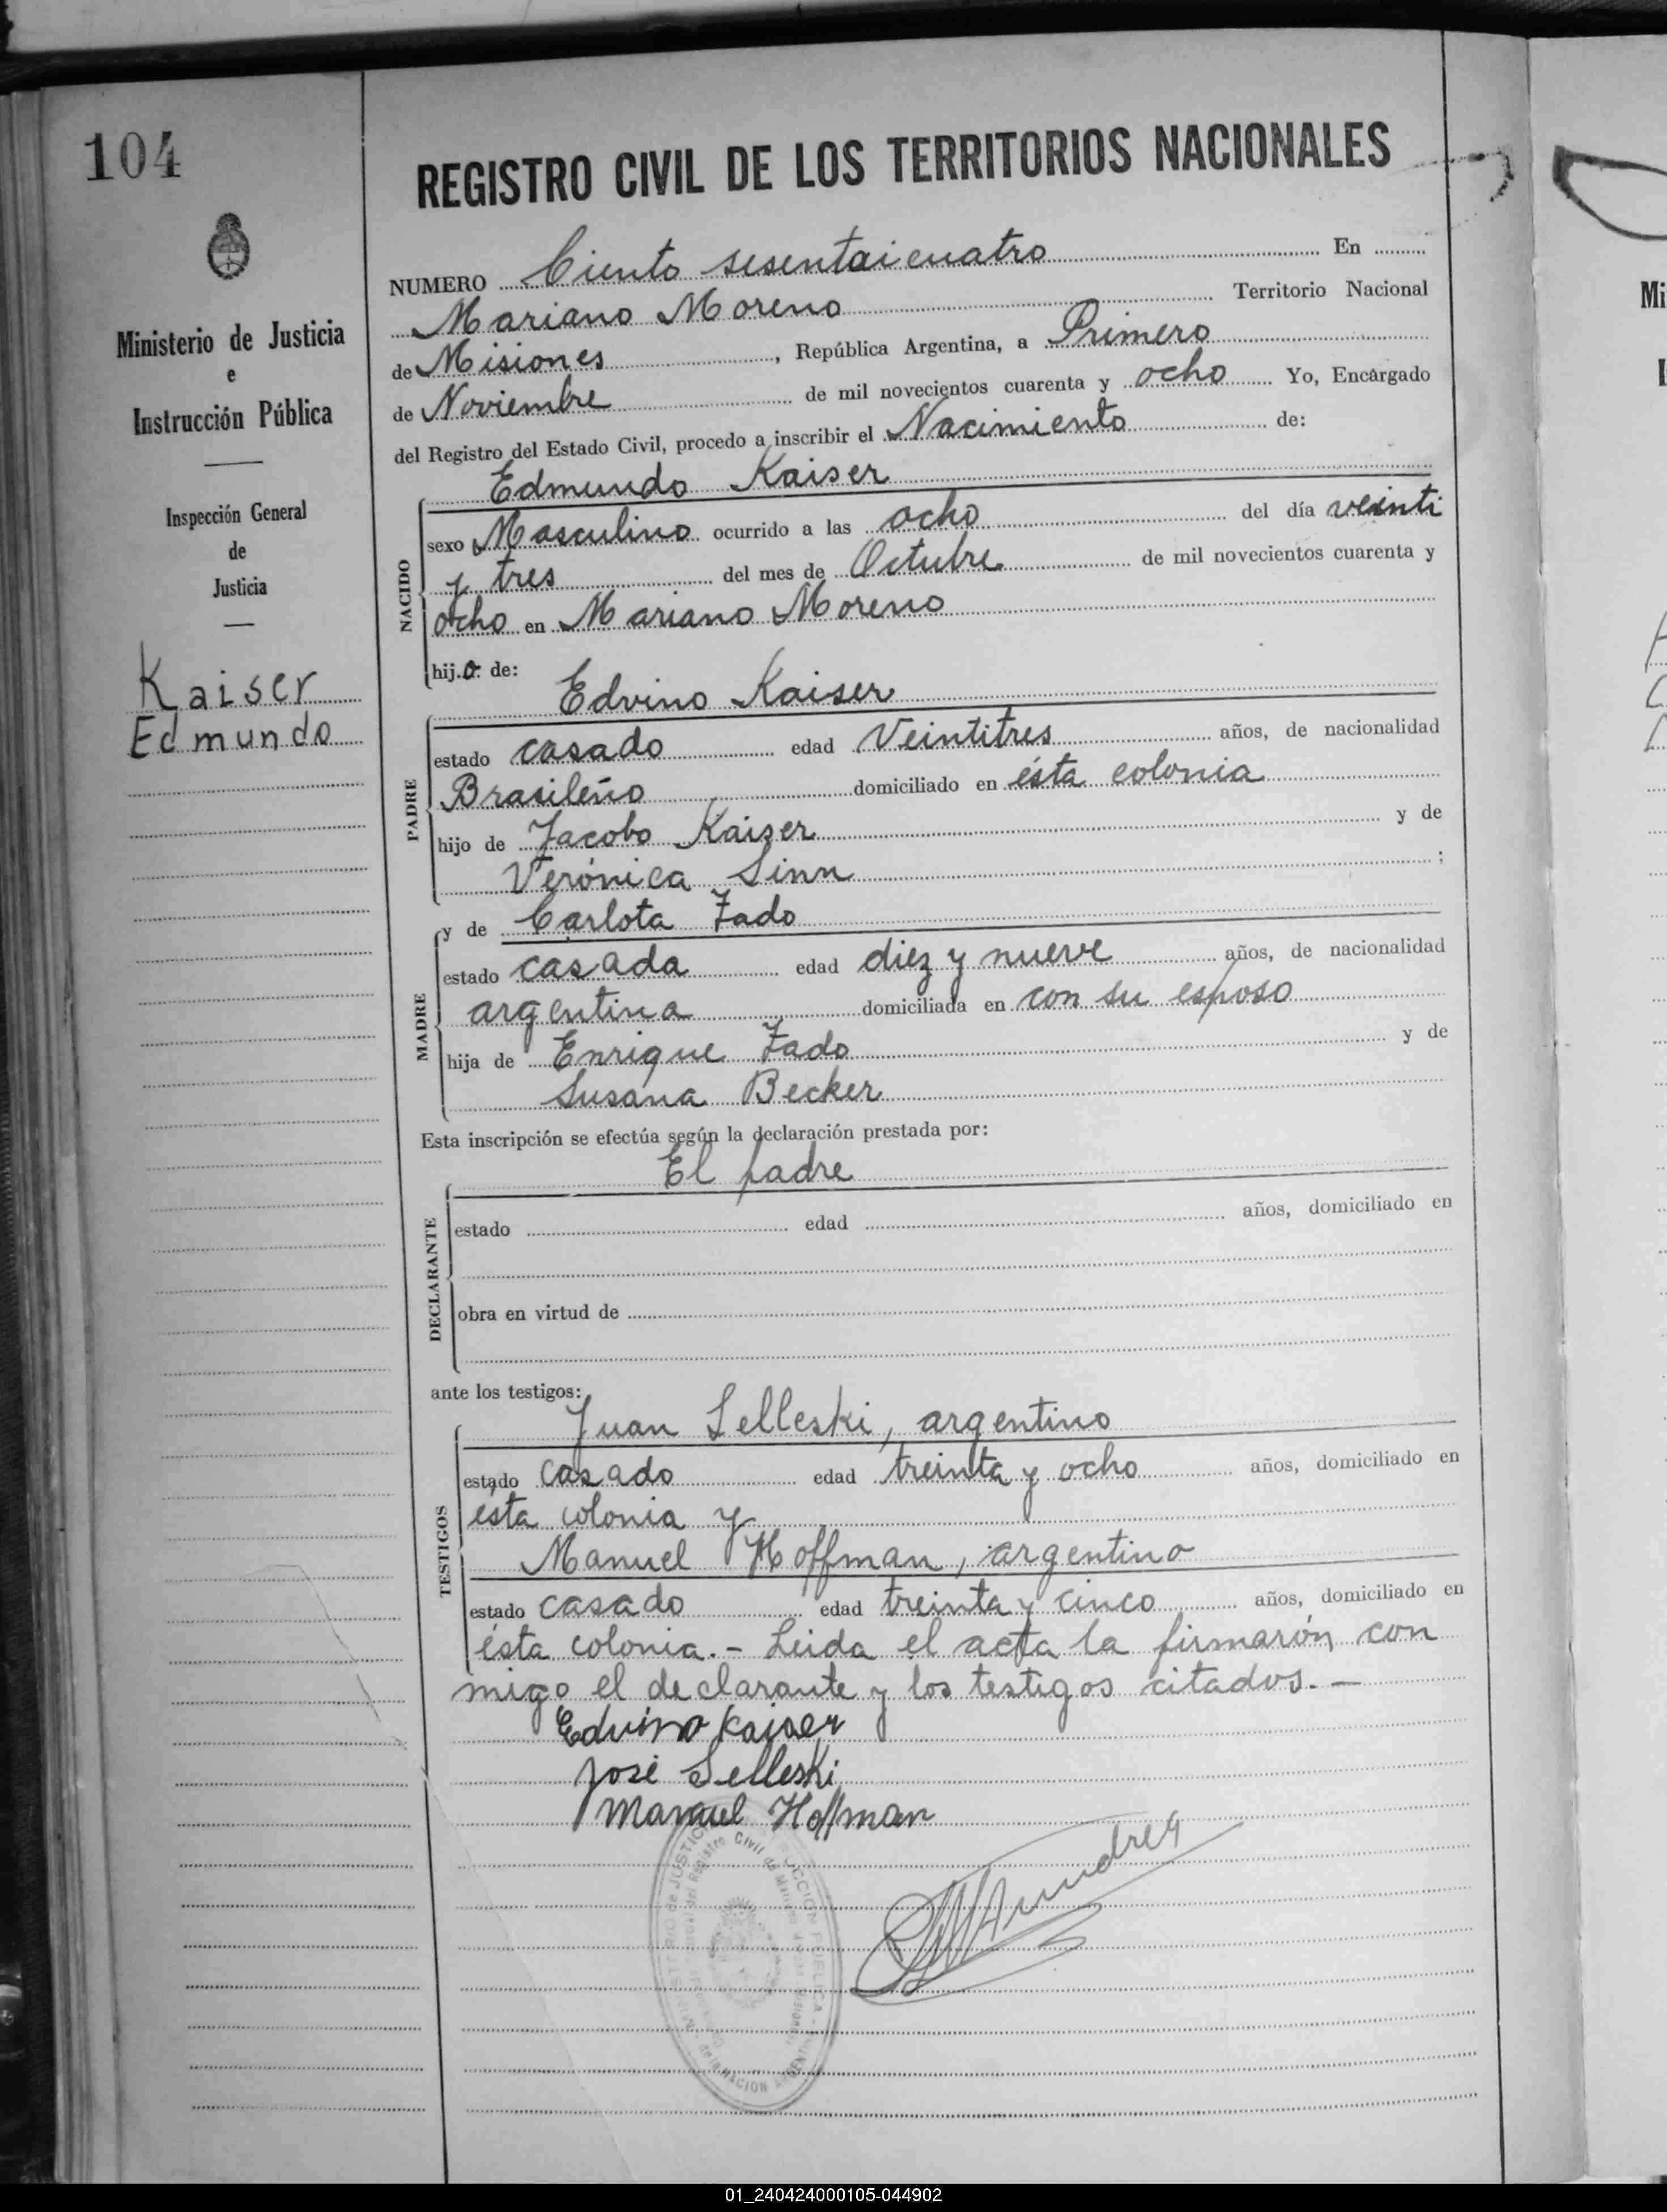 104
REGISTRO CIVIL DE LOS TERRITORIOS NACIONALES
Ministerio de Justicia
e
Instrucción Pública
Inspección General
de
Justicia
Kaiser
Edmundo
NUMERO Ciento sesentaicuatro En
Mariano Moreno Territorio Nacional
de Misiones, República Argentina, a Primero
de Noviembre de mil novecientos cuarenta y ocho Yo, Encargado
del Registro del Estado Civil, procedo a inscribir el Nacimiento de:
Edmundo Kaiser
NACIDO
sexo Masculino ocurrido a las ocho del día veinti
y tres del mes de Octubre de mil novecientos cuarenta y
ocho en Mariano Moreno
hijo de:
Edvino Kaiser
PADRE
estado casado edad Veintitres años, de nacionalidad
Brasileño domiciliado en ésta colonia
hijo de Jacobo Kaiser y de
Verónica Sinn ;
y de Carlota Zado
MADRE
estado casada edad diez y nueve años, de nacionalidad
argentina domiciliada en con su esposo
hija de Enrique Zado y de
Susana Becker
Esta inscripción se efectúa según la declaración prestada por:
El padre
DECLARANTE
estado edad años, domiciliado en
obra en virtud de
ante los testigos:
Juan Selleski, argentino
TESTIGOS
estado casado edad treinta y ocho años, domiciliado en
ésta colonia y
Manuel Hoffman, argentino
estado casado edad treinta y cinco años, domiciliado en
ésta colonia.- Leida el acta la firmarón con
migo el declarante y los testigos citados.-
Edvino Kaiser
José Selleski
Manuel Hoffman
Mi
01_240424000105-044902